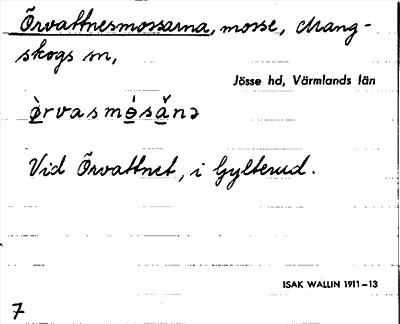 Örvattnesmossarna, mosse, Mang-
skogs sn,
Jösse hd, Värmlands län
Vid Örvattnet, i Gylterud.
ISAK WALLIN 1911–13
7